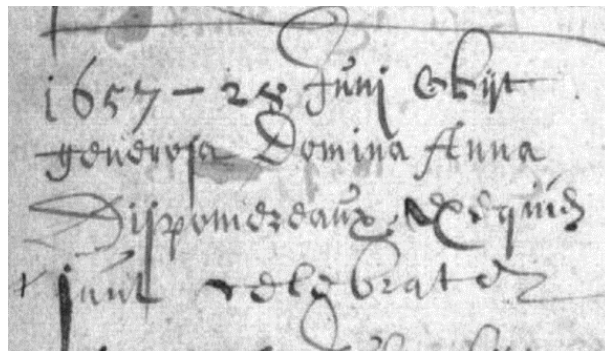 1657 - 28 Junij Obijt
generosa Domina Anna
Dispomereaux, exequiæ
sunt celebratæ